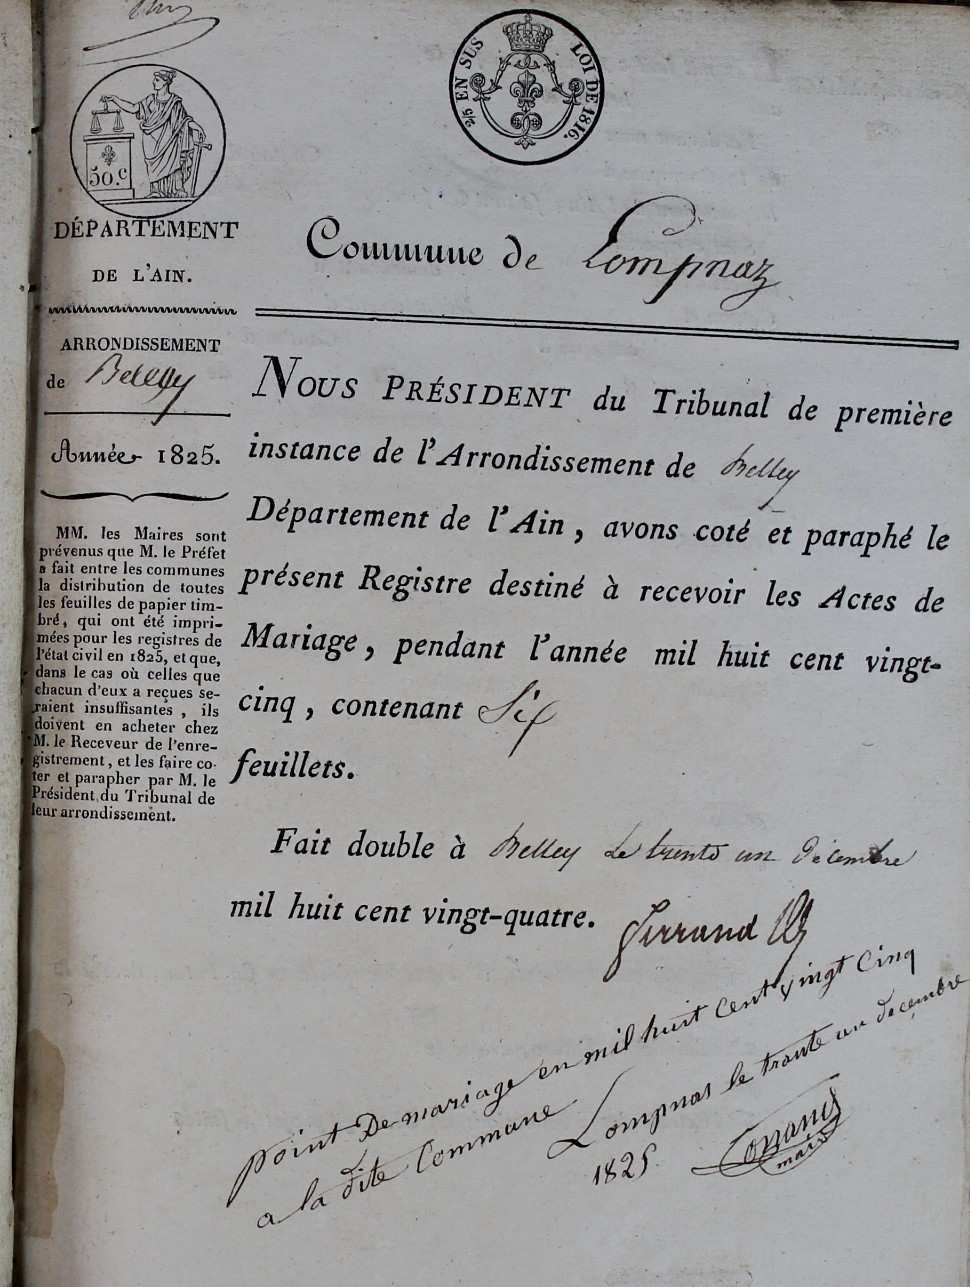 2/5 EN SUS LOI DE 1816.
50.c
DÉPARTEMENT
DE L'AIN.
ARRONDISSEMENT
de Belley
Année 1825.
MM. les Maires sont
prévenus que M. le Préfet
a fait entre les communes
la distribution de toutes
les feuilles de papier tim-
bré, qui ont été impri-
mées pour les registres de
l'état civil en 1825, et que,
dans le cas où celles que
chacun d'eux a reçues se-
raient insuffisantes, ils
doivent en acheter chez
M. le Receveur de l'enre-
gistrement, et les faire co-
ter et parapher par M. le
Président du Tribunal de
leur arrondissement.
Commune de Lompnaz
NOUS PRÉSIDENT du Tribunal de première
instance de l'Arrondissement de Belley
Département de l'Ain, avons coté et paraphé le
présent Registre destiné à recevoir les Actes de
Mariage, pendant l'année mil huit cent vingt-
cinq, contenant Six
feuillets.
Fait double à Belley le trente un décembre
mil huit cent vingt-quatre.
point De mariage en mil huit cent vingt Cinq
a la dite Commune Lompnas le trante un decembre
1825
maire